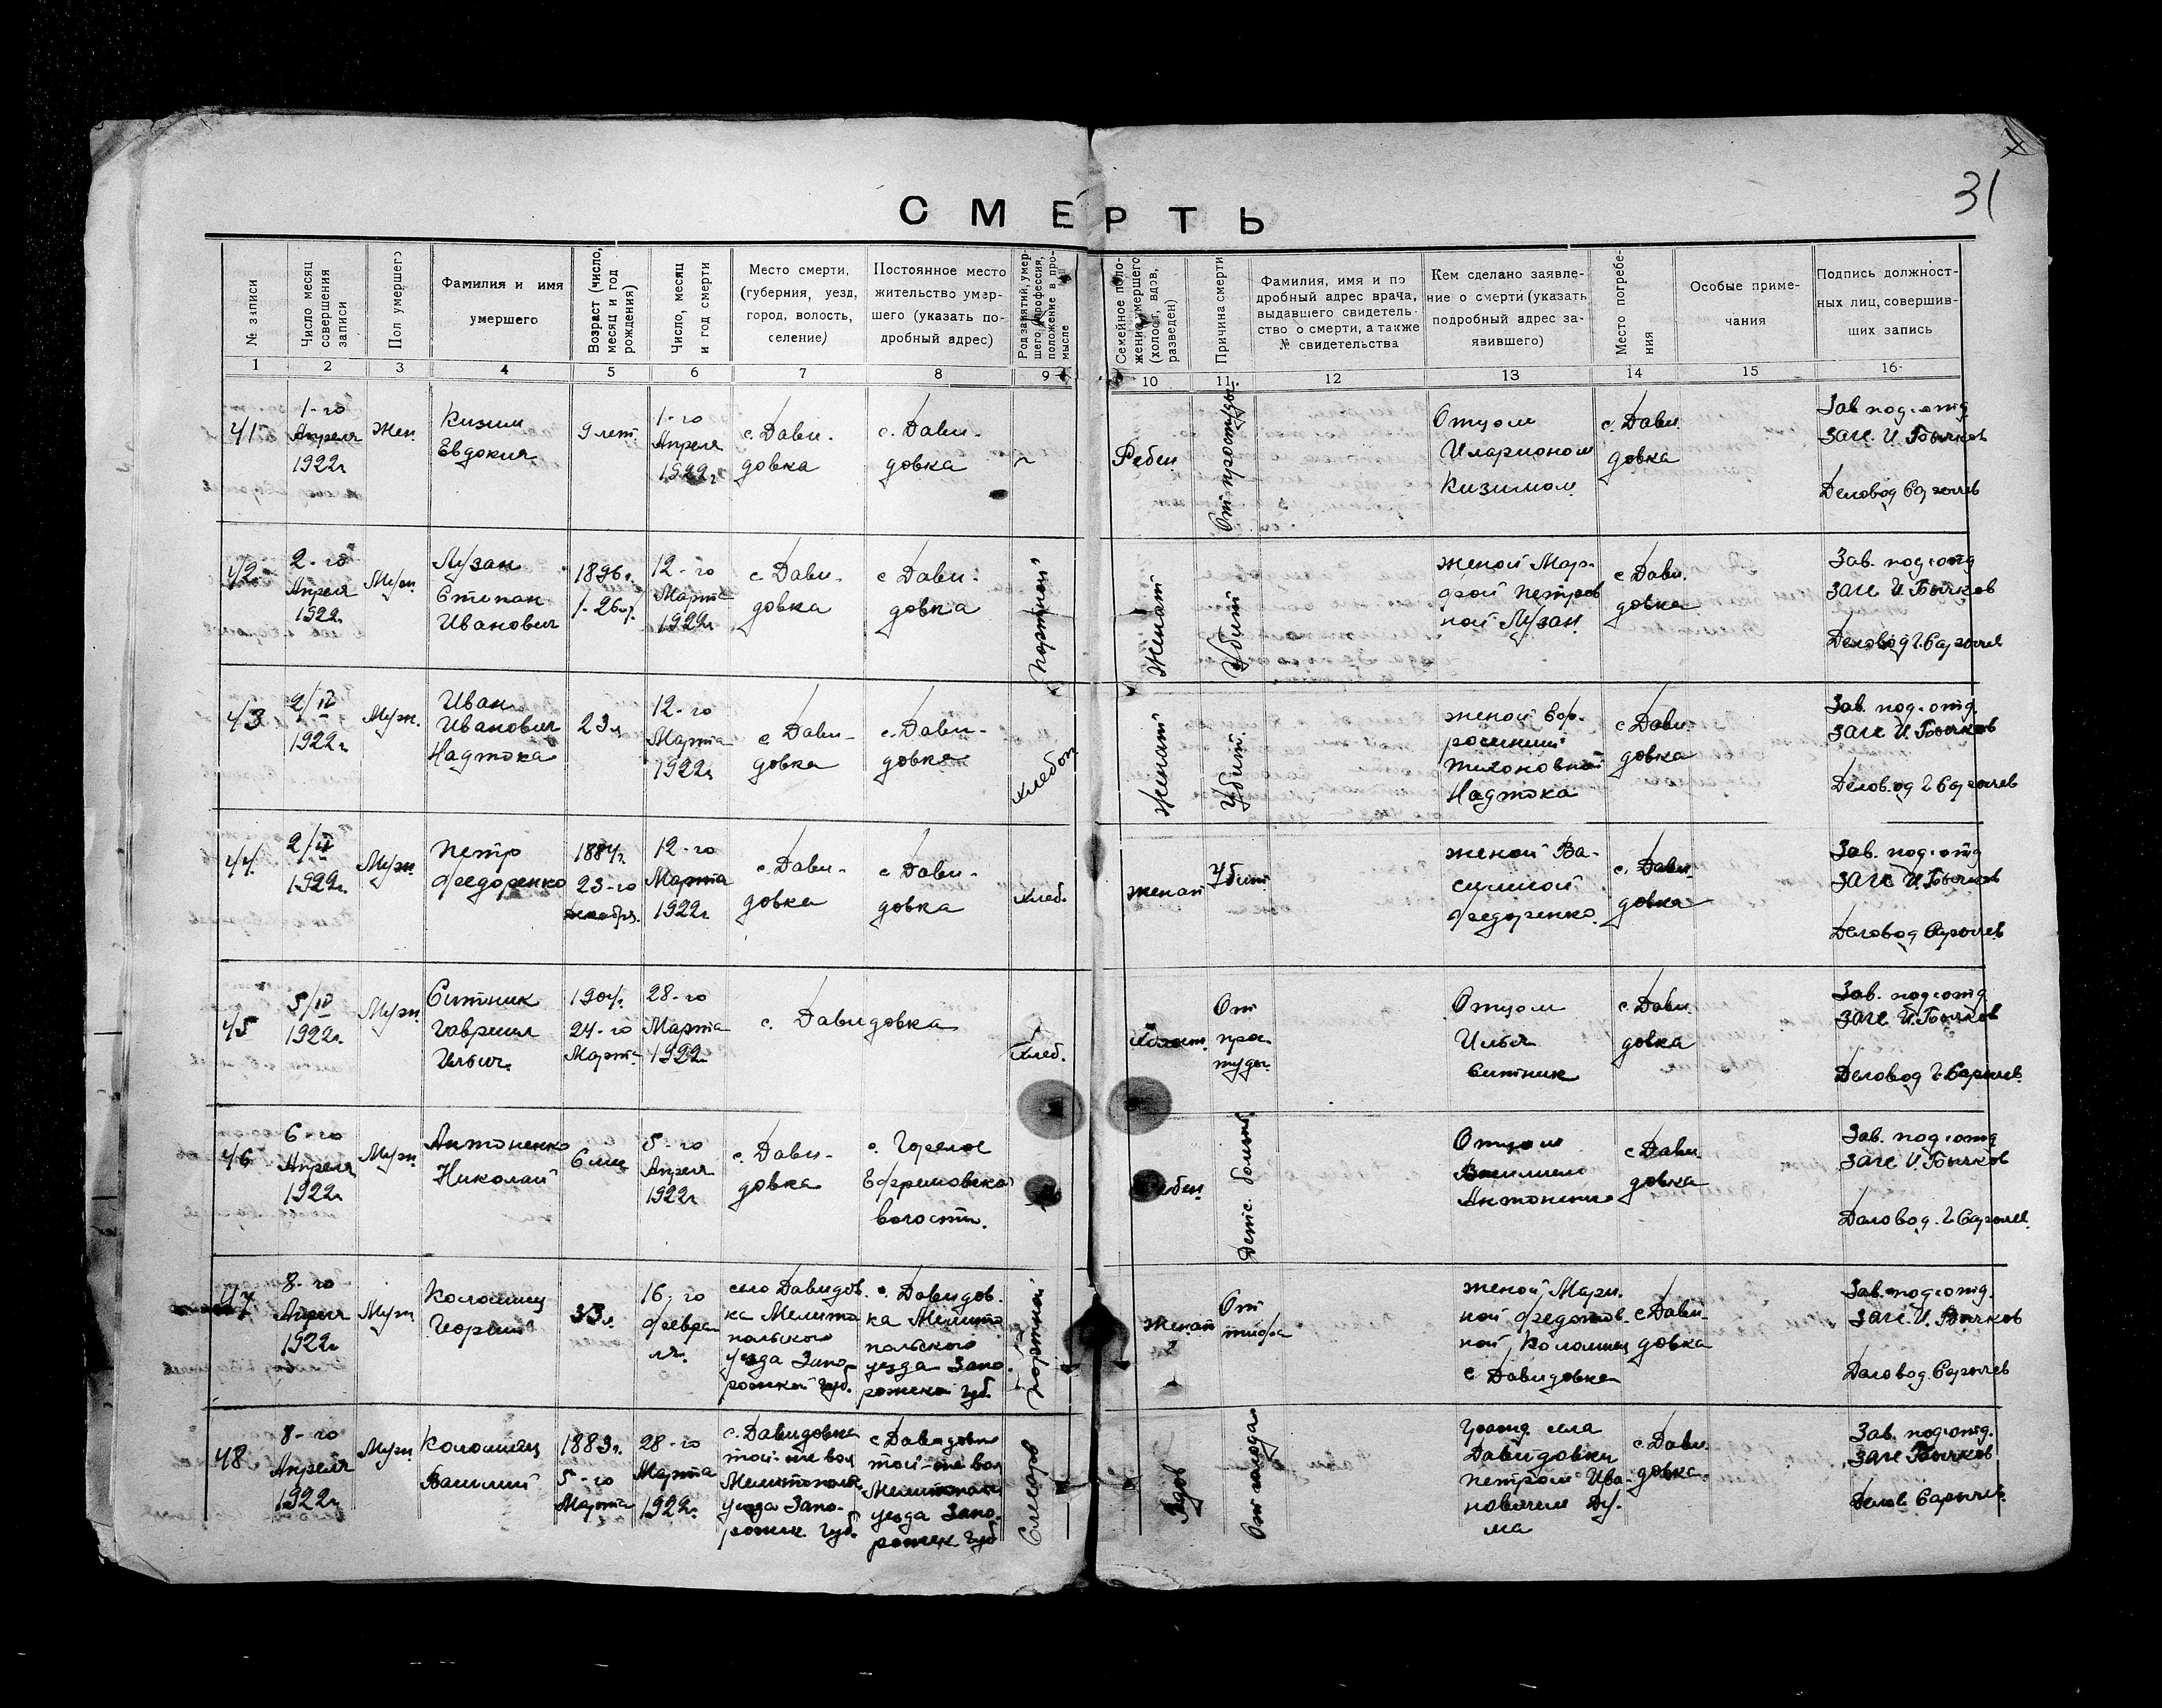 31
СМЕРТЬ
№ записи
Число месяц
совершения
записи
Пол умершего
Фамилия и имя
умершего
Возраст (число,
месяц и год
рождения)
Число, месяц
и год смерти
Место смерти,
(губерния, уезд,
город, волость,
селение)
Постоянное место
жительство умер-
шего (указать по-
дробный адрес)
Род занятий, умер-
шего, профессия,
положение в про-
мысле
Семейное поло-
жение умершего
(холост, вдов,
разведен)
Причина смерти
Фамилия, имя и по
дробный адрес врача,
выдавшего свидетель-
ство о смерти, а также
№ свидетельства
Кем сделано заявле-
ние о смерти (указать
подробный адрес за-
явившего)
Место погребе-
ния
Особые приме-
чания
Подпись должност-
ных лиц, совершив-
ших запись
1 2 3 4 5 6 7 8 9 10 11 12 13 14 15 16
41
1-го
Апреля
1922г
Жен.
Кизим
Евдокия
9 лет.
1-го
Апреля
1922г
с. Дави-
довка
с. Дави-
довка
Ребен.
От простуды
Отцом
Иларионом
Кизимом
с. Дави.
довка
Зав. под.отд
ЗАГС. И. Бычков
Деловод
42
2-го
Апреля
1922г.
Муж.
Лузан
Степан
Иванович
1896г.
12-го
Марта
1922г
с Дави-
довка
с Дави-
довка
Портной
Женат
Убит
женой Мар-
фой Петров
ной Лузан
с Дави.
довка
Зав. под.отд
ЗАГС И. Бычков
Деловод
43
2/IV
1922г
Муж.
Иван
Иванович
Надтока
23 л
12-го
Марта
1922г.
с Дави-
довка
с. Дави-
довка
Хлебоп
Женат
Убит.
женой
Тихоновной
Надтока
с Дави.
довка
Зав. под.отд.
ЗАГС И. Бычков
Деловод
44.
2/IV
1922г.
Муж.
Петр
Федоренко
1884г.
23-го
Декабря.
12-го
Марта
1922г
с. Дави-
довка
с Дави-
довка
Хлеб.
женат
Убит
женой Ва-
Федоренко.
с. Дави-
довка
Зав. под.отд
ЗАГС И. Бычков
Деловод
45
5/IV
1922г.
Муж.
Ситник
Гавриил
Ильич.
1904г.
24-го
Марта.
28-го
Марта
1922г
с. Давидовка
Хлеб.
Холост.
От
про-
туды.
Отцом
Ильей
Ситник
с. Дави
довка
Зав. под.отд
ЗАГС И. Бычков
Деловод
46
6-го
Апреля
1922г
Муж.
Антоненко
Николай
6 мес
5-го
Апреля
1922г
с. Дави-
довка
с. Горелое
Ефремовской
волости.
Детс. болезнь
Отцом
Василием
Антоненко
с Дави.
довка
Зав. под.отд
ЗАГС И. Бычков
Деловод.
47
8-го
Апреля
1922г
Муж
Коломиец
33 л.
16-го
Февра
ля.
село Давидов.
ка Мелито
польского
уезда Запо-
рожской губ.
с. Давидов.
ка Мелито
польского
уезда Запо.
рожской губ.
Портной
Женат
От
тифа
женой Мари.
ной Федотов-
ной Коломиец
с Давидовка
с Дави-
довка
Зав. под.отд.
ЗАГС. И. Бычков
Деловод.
48
8-го
Апреля
1922г.
Муж.
Коломиец
Василий
1883г.
5-го
Марта
28-го
Марта
1922г.
с. Давидовка
той-же вол
Мелитопольск.
уезда Запо-
рожск губ.
с Давидовка
той-же вол
Мелитопольск
уезда Запо.
рожск губ
Столяр
Вдов
От голода
Гражд. села
Давидовки
Петром Ива-
новичем Ду.
ма
с. Дави.
довка.
Зав. под.отд.
ЗАГС Бычков
Делов.